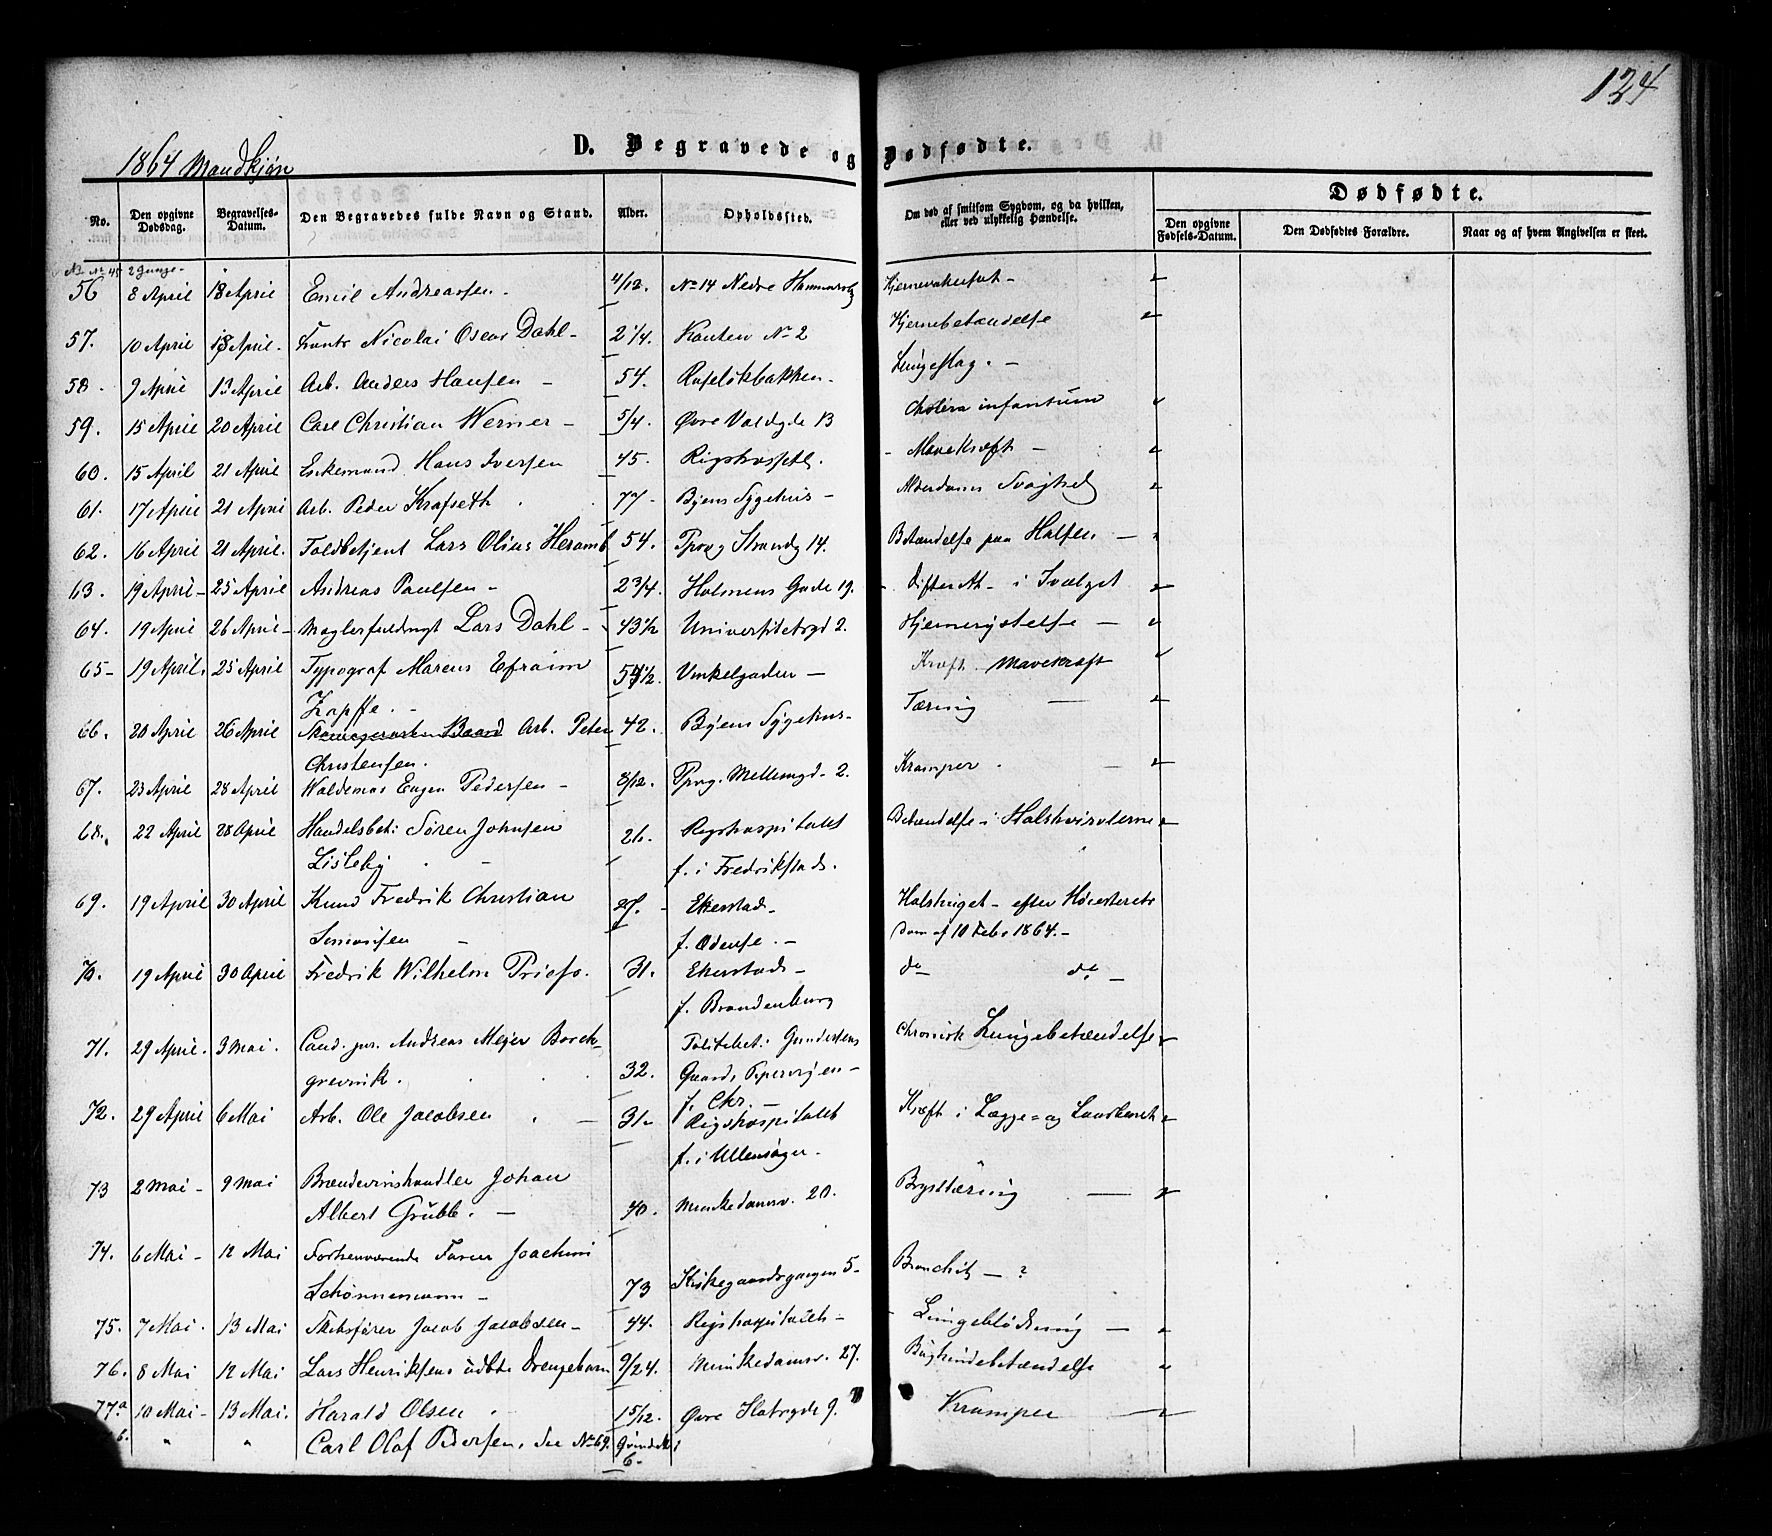 124
1864 Mandkjøn
D. Begravede og Dødfødte.
No. Den opgivne Dødsdag. Begravelses-Datum. Den Begravedes fulde Navn og Stand. Alder. Opholdssted. Om død af smitsom Sygdom, og da hvilken, eller ved ulykkelig Hændelse.
Dødfødte.
Den opgivne Fødsels-Datum. Den Dødfødtes Forældre. Naar og af hvem Angivelsen er skeet.
NB No 45 2 Gange-
56 8 April 18 April Emil Andreassen - 4/12. No 14 Nedre
57. 10 April 13 April - Nicolai Oscar Dahl - 2 1/4. Kanten No 2 Hjernebetændelse
58. 9 April 13 April Arb. Anders Hansen - 54. Rafeløkbakken. Lungeslag. -
59. 15 April 20 April Carl Christian Werner - 5/4. Øvre Voldgde 13 Cholera infantum
60. 15 April 21 April Hans Iversen 45. Rigshospitl. - Mavekræft -
61. 17 April 21 April Arb. Peder Krafseth 77 - Byens Sygehus - Alderdoms Svaghed
62. 16 April 21 April. Toldbetjent Lars Olius Heramb 54. Pprvg Strandg 14. Betændelse paa Halsen -
63. 19 April - 25 April Andreas Paulsen - 2 3/4. Holmens Gade 19. - Difterit - i Svælget
64. 19 April 26 April - Mæglerfuldmgt Lars Dahl - 43 1/2 Universitetsgd 2. Hjernerystelse -
65 - 19 April. 25 April Typograf Marcus Efraim 54 1/2. Vinkelgaden - Kræft. Mavekræft
Zapffe. -
66. 20 April 26 April Arb. Peter 42. Byens Sygehus - Tæring -
Christensen.
67. 23 April 28 April Waldemar Eugen Pedersen - 8/12. Pprvg. Mellemgd. 2. Kramper -
68. 22 April 28 April Handelsbet: Søren Johnsen 26. Rigshospitalet Betændelse i Halshvirvlerne
Lisleby - f. i Fredrikstad.
69. 19 April 30 April Knud Fredrik Christian 27. - Ekerstad - Halshugget - efter Høiesterets
Simonsen - f. Odense. - Dom af 10 Feb. 1864. -
70. 19 April 30 April Fredrik Wilhelm Priess. 31. Ekerstad - do do -
f. Brandenburg
71. 29 April. 3 Mai. Cand. jur. Andreas Mejer Borch- Politibet: Gundersens Chronisk Lungebetændelse
grevink. 32. Gaard, Pipervigen -
f. Chr. -
72. 29 April 6 Mai Arb. Ole Jacobsen - 31 - Rigshospitalet Kræft i Lægge- og Laarbenet
f. i Ullensager.
73 2 Mai - 9 Mai Brændevinshandler Johan
Albert Grubb. - 40. Munkedamsv. 20. Brysttæring -
74. 6 Mai - 12 Mai Forhenværende Farver Joachim
Schønnemann - 73 Kirkegaardsgangen 5 - Bronchit - ?
75. 7 Mai. 13 Mai Skibsfører Jacob Jacobsen - 44. Rigshospitalet - - Lungeblødning -
76. 8 Mai 12 Mai Lars Henriksens udbte Drengebarn 9/24. Munkedamsv. 27. Bughindebetændelse
77a 10 Mai - 13 Mai. Harald Olsen 15/12. Øvre Slotsgde 9. Kramper -
b. " " Carl Olaf Pedersen, see No 69. Qvindek:
6 -